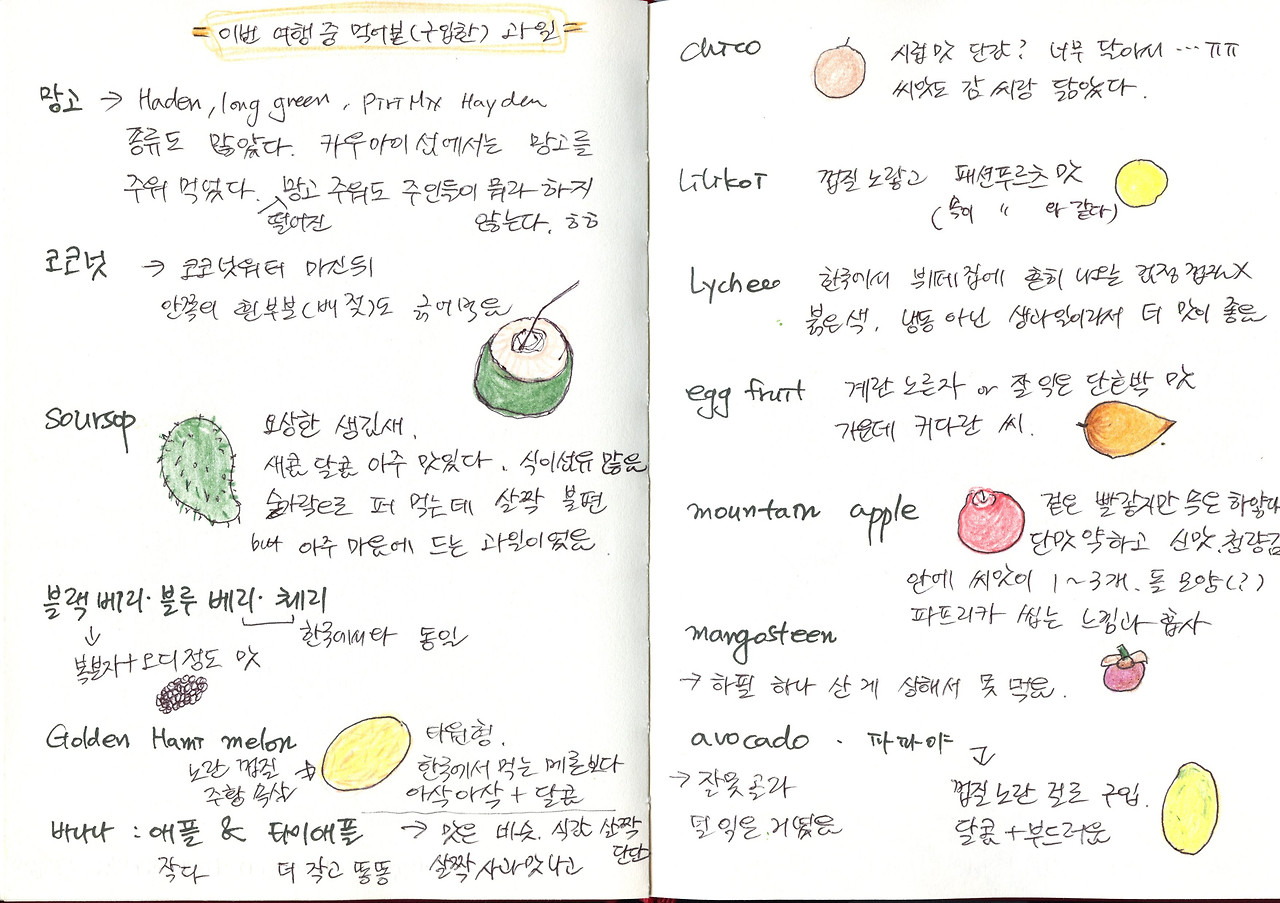 = 이번 여행 중 먹어본(구입한) 과일 =
망고 → Haden, long green, PiriMix Hayden
종류도 많았다. 카우아이 섬에서는 망고를
주워 먹었다. 망고 주워도 주인들이 뭐라 하지
떨어진
않는다. ㅎㅎ
코코넛 → 코코넛워터 마신 뒤
안쪽의 흰부분(배 젖)도 긁어먹음
soursop
요상한 생김새.
새콤 달콤 아주 맛있다. 식이섬유 많음
숟가락으로 퍼 먹는데 살짝 불편
but 아주 마음에 드는 과일이었음.
블랙베리·블루베리·체리
↓ 한국에서와 동일
복분자+오디 정도 맛
Golden Hami melon
노란 껍질
주황 속살
타원형.
한국에서 먹는 메론보다
아삭아삭 + 달콤
바나나 : 애플 & 타이애플 → 맛은 비슷. 식감 살짝
단단
작다 더 작고 뚱뚱 살짝 사과맛 나고
chico
시럽 맛 단감? 너무 달아서 … ㅠㅠ
씨앗도 감 씨랑 닮았다.
lilikoi 껍질 노랗고 패션푸르츠 맛
(속이 〃 와 같다)
Lychee 한국에서 뷔페집에 흔히 나오는 검정 껍질X
붉은색. 냉동 아닌 생과일이라서 더 맛이 좋음
egg fruit 계란 노른자 or 잘 익은 단호박 맛
가운데 커다란 씨.
mountain apple
겉은 빨갛지만 속은 하얗다
단맛 약하고 신맛. 청량감
안에 씨앗이 1~3개. 돌 모양(?)
파프리카 씹는 느낌과 흡사
mangosteen
→ 하필 하나 산 게 상해서 못 먹음.
avocado · 파파야
→ 잘못 골라
덜 익은 거였음
↓
껍질 노란 걸로 구입.
달콤 + 부드러움